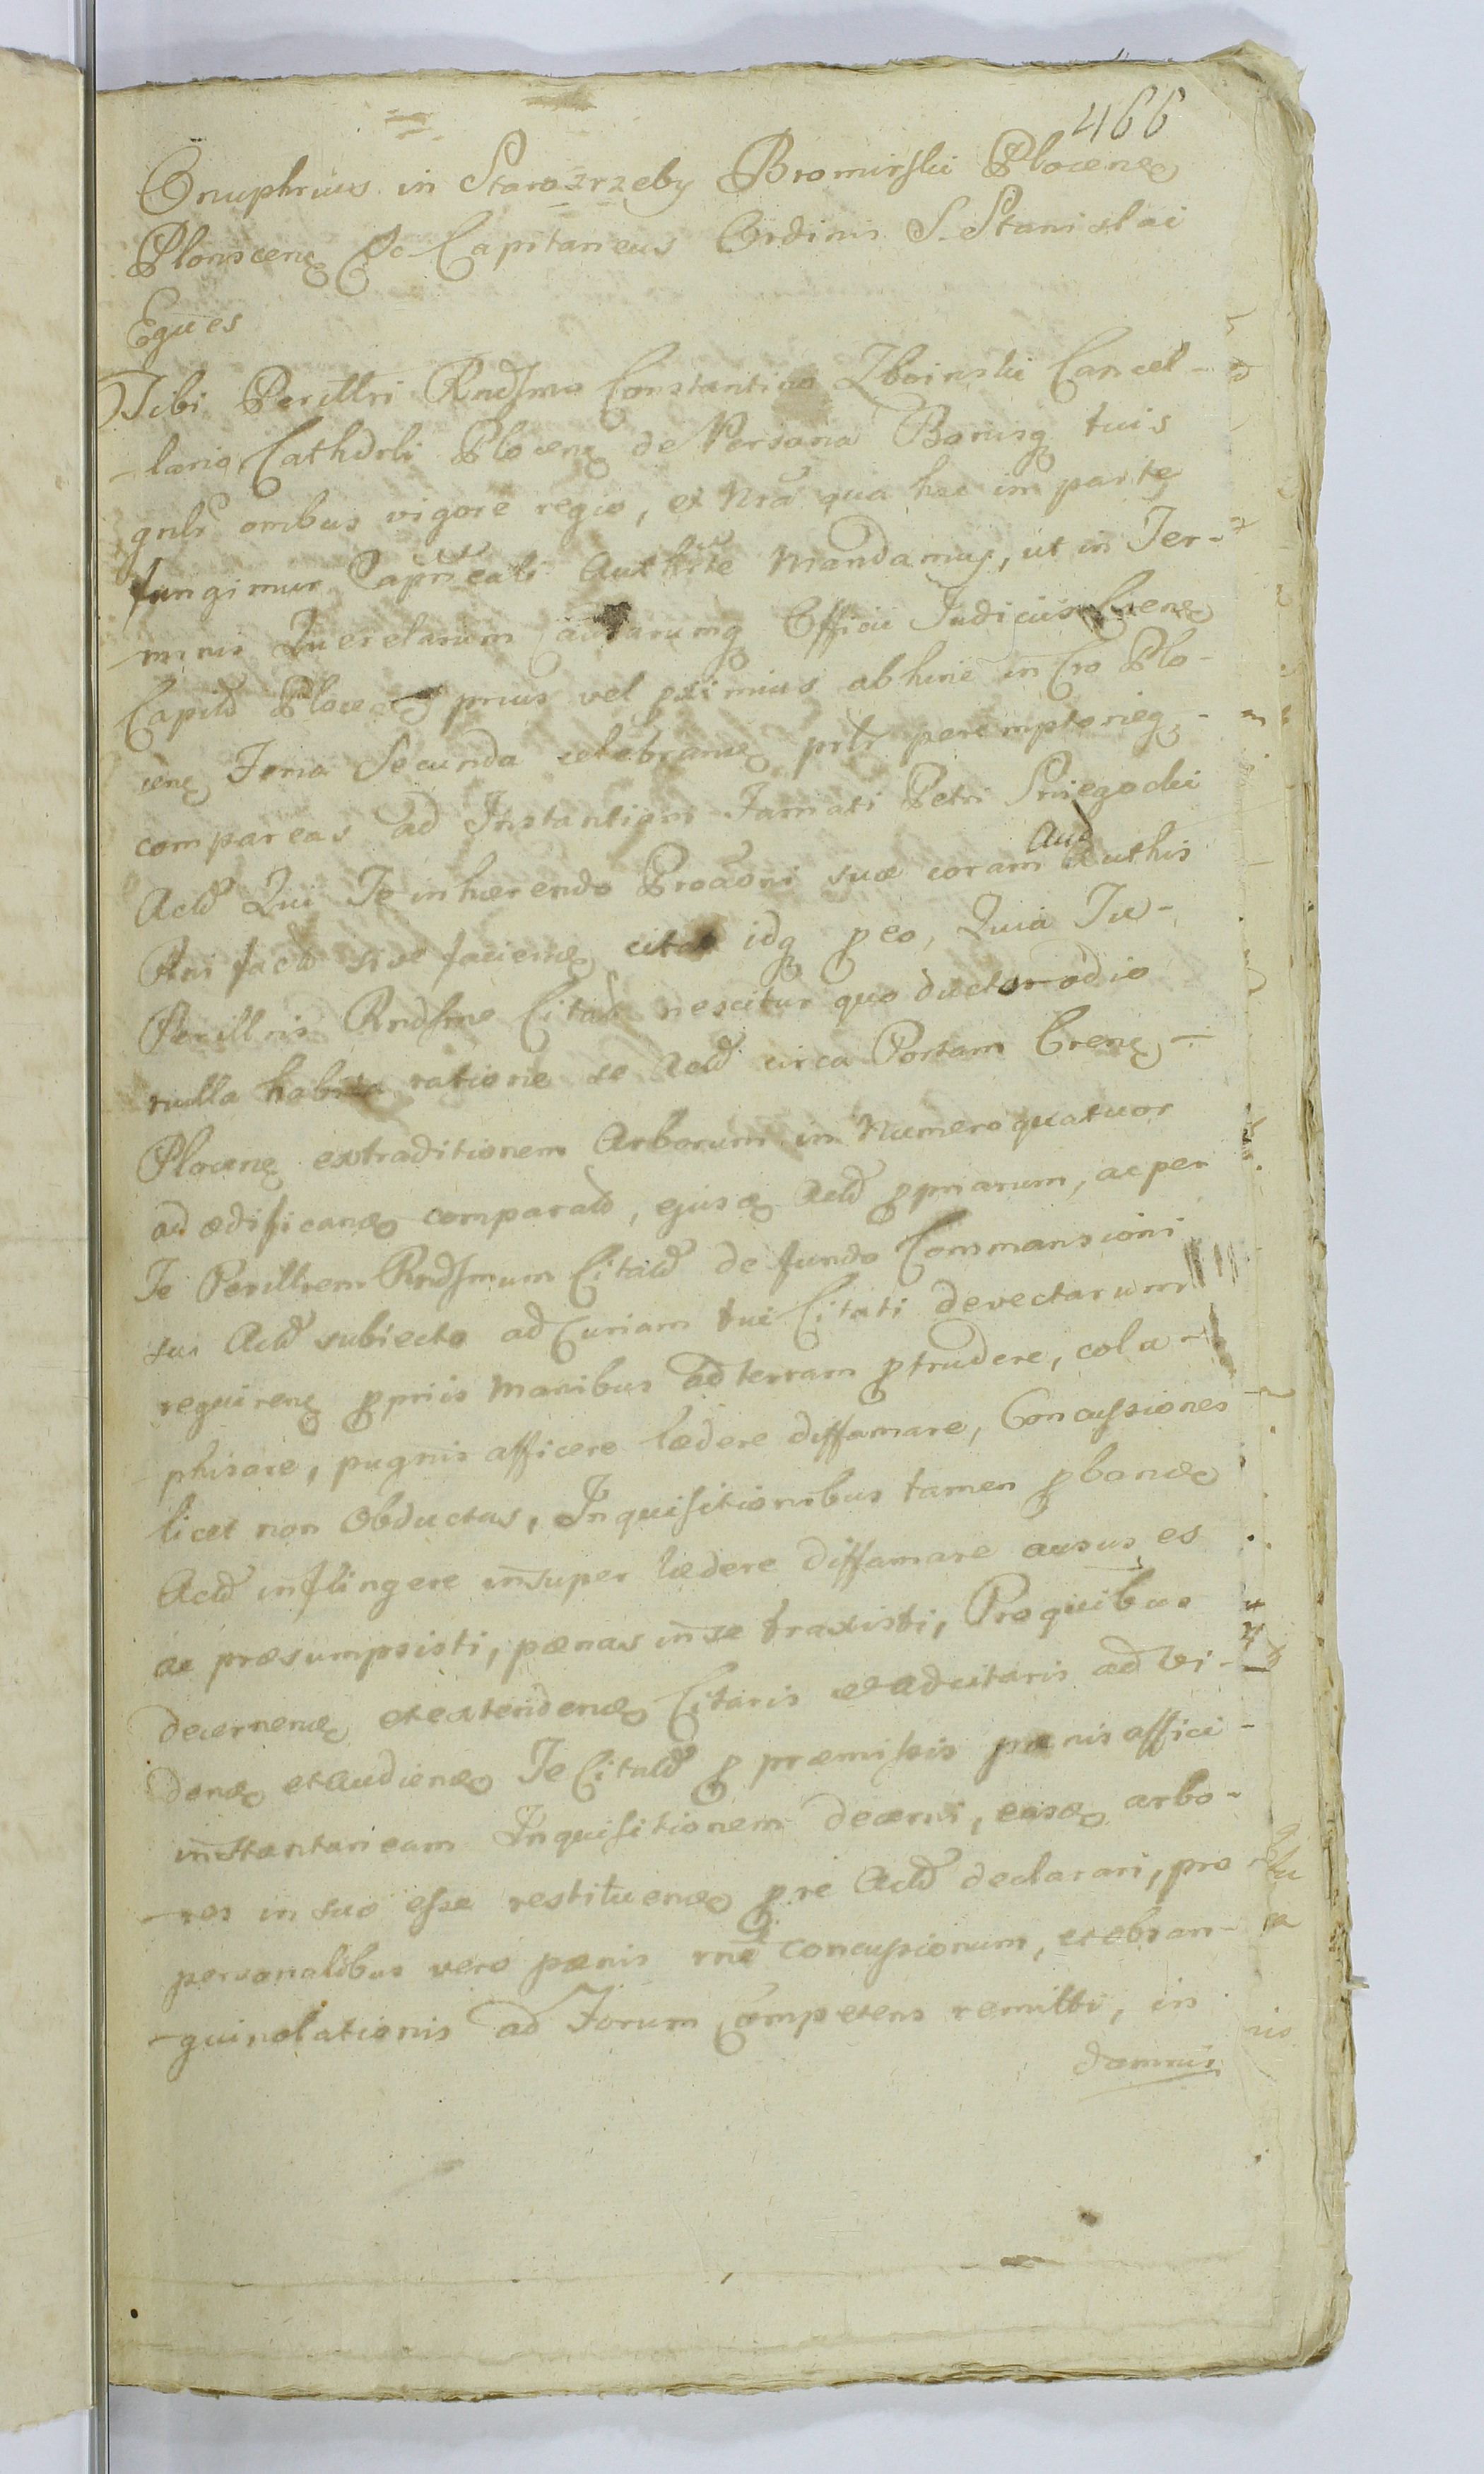 466
Onuphrius in Starozrzeby Bromirski Plocen
Plonscen &c Capitaneus Ordinis S. Stanislai
Eques
Tibi Perillri Rndssmo Constantino Zboinski Cancel-
-lario Cathdrli Plocen de Persona Bonisq tuis
gnlr omibus vigore regio, et Nra qua hac in parte
fungimur Capneali Authrte Mandamus, ut in Ter-
-minis Querelarum Causarumq Officii Judicii
Capild Plocen prius vel proximius abhinc in Cro Plo-
cen Feria Secunda celebran prlr peremptorieq
compareas ad Instantiam Famati Petri Sniegocki
Actd Qui Te inhærendo Proaoni suæ coram Aud Authis
facta sive facien citat idq p eo, Quia Tu
Perillris Rndssme Citate nescitur quo ductus odio
nulla habita ratione se Actd circa Portam
Plocen extraditionem Arborum in Numero quatuor
ad ædifican comparatd, ejusq Actd ppriarum, ac per
Te Perillrem Rndssmum Citatd de fundo Commansioni
suæ Actd subiecto ad Curiam tui Citati devectarum
requiren ppriis Manibus ad terram ptrudere, cola-
phisare, pugnis afficere lædere diffamare, Concussiones
licet non Obductas, Inquisitionibus tamen pband
Actd inflingere insuper lædere diffamare ausus es
ac præsumpsisti, pænas in se traxisti, Pro quibus
decernen et extenden Citaris et adcitaris ad vi-
den et audien Te Citatd p præmissis pænis affici
instantaneam Inquisitionem decerni, easq arbo-
-res in suo esse restituen p re Actd declarari, pro
personalibus vero pænis rne concussionum, et exsan-
-guinolationis ad Forum Competens remitti, in
damnis